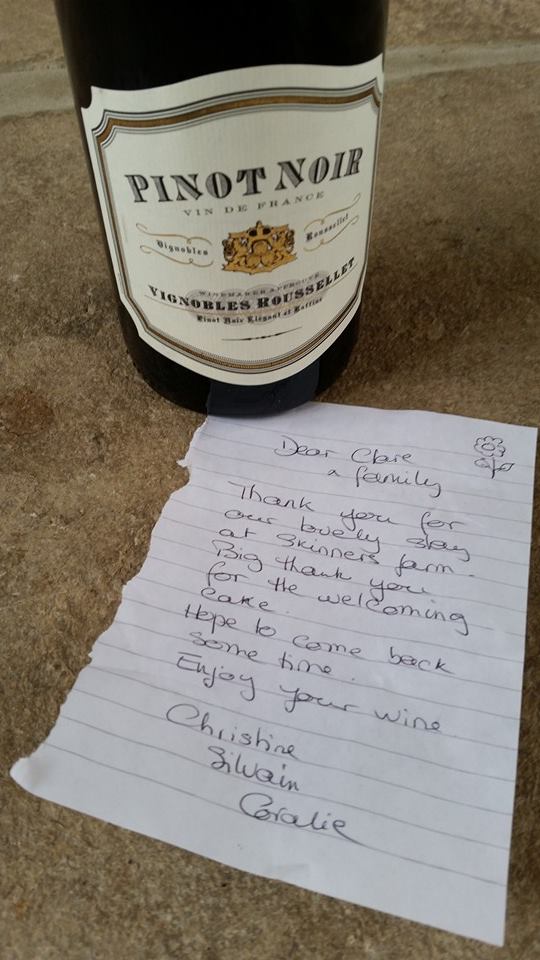 PINOT NOIR
VIN DE FRANCE
Vignobles Roussellet
WINEMAKER APPROUVE
VIGNOBLES ROUSSELLET
Pinot Noir Elégant et Raffiné
Dear Clare
& family
Thank you for
our lovely stay
at Skinners farm.
Big thank you
for the welcoming
cake.
Hope to come back
some time.
Enjoy your wine
Christine
Silvain
Coralie